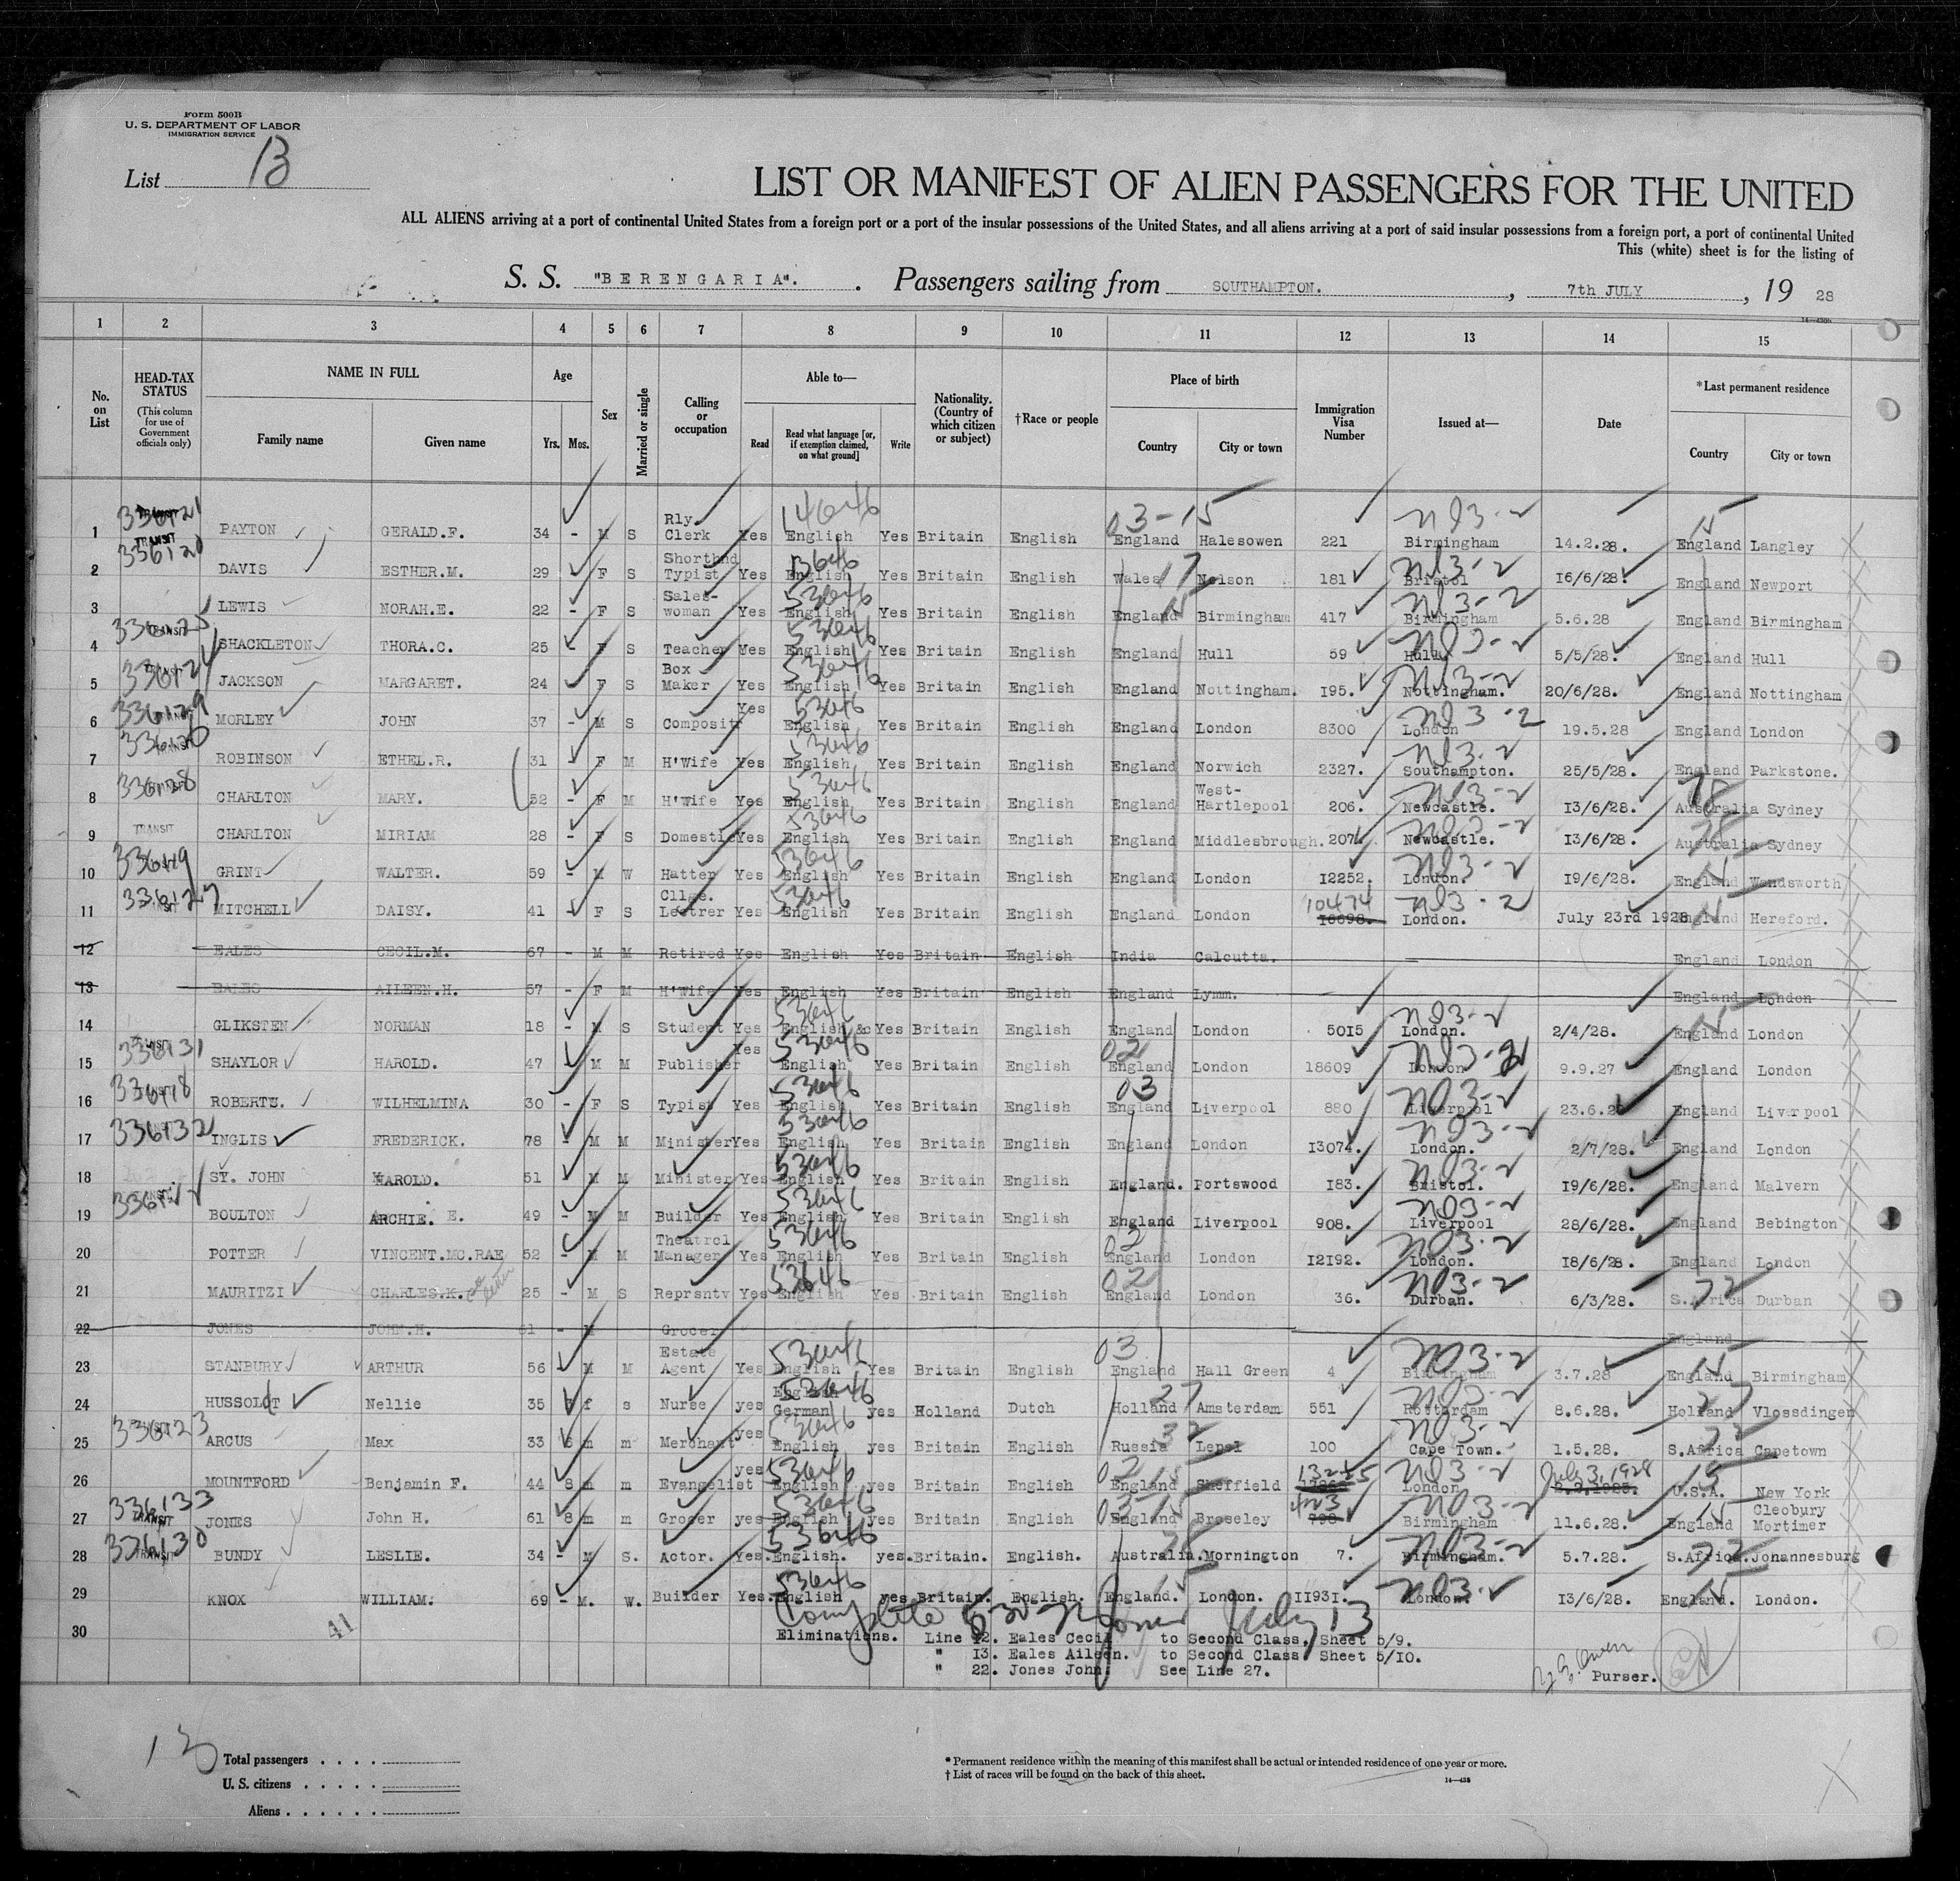 Form 500B
U. S. DEPARTMENT OF LABOR
IMMIGRATION SERVICE
List B
LIST OR MANIFEST OF ALIEN PASSENGERS FOR THE UNITED
ALL ALIENS arriving at a port of continental United States from a foreign port or a port of the insular possessions of the United States, and all aliens arriving at a port of said insular possessions from a foreign port, a port of continental United
This (white) sheet is for the listing of
S. S. "BERENGARIA". Passengers sailing from SOUTHAMPTON. , 7th JULY , 19 28
1 2 3 4 5 6 7 8 9 10 11 12 13 14 15
No. on List HEAD-TAX STATUS (This column for use of Government officials only) NAME IN FULL Family name Given name Age Yrs. Mos. Sex Married or single Calling or occupation Able to— Read Read what language [or, if exemption claimed, on what ground] Write Nationality. (Country of which citizen or subject) †Race or people Place of birth Country City or town Immigration Visa Number Issued at— Date *Last permanent residence Country City or town
1 336121 PAYTON GERALD.F. 34 - M S Rly. Clerk Yes English Yes Britain English England Halesowen 221 Birmingham 14.2.28. England Langley
2 TRANSIT 336120 DAVIS ESTHER.M. 29 F S Shorthnd Typist Yes English Yes Britain English Wales Nelson 181 Bristol 16/6/28. England Newport
3 LEWIS NORAH.E. 22 - F S Sales-woman Yes English Yes Britain English England Birmingham 417 Birmingham 5.6.28 England Birmingham
4 336125 TRANSIT SHACKLETON THORA.C. 25 - F S Teacher Yes English Yes Britain English England Hull 59 Hull 5/5/28. England Hull
5 336124 JACKSON MARGARET. 24 F S Box Maker Yes English Yes Britain English England Nottingham. 195. Nottingham. 20/6/28. England Nottingham
6 336129 MORLEY JOHN 37 - M S Composit Yes English Yes Britain English England London 8300 London 19.5.28 England London
7 ROBINSON ETHEL.R. 31 F M H'Wife Yes English Yes Britain English England Norwich 2327. Southampton. 25/5/28. England Parkstone.
8 336128 CHARLTON MARY. 52 - F M H'Wife Yes English Yes Britain English England West-Hartlepool 206. Newcastle. 13/6/28. Australia Sydney
9 TRANSIT CHARLTON MIRIAM 28 - F S Domestic Yes English Yes Britain English England Middlesbrough. 207. Newcastle. 13/6/28. Australia Sydney
10 336119 GRINT WALTER. 59 - M W Hatter Yes English Yes Britain English England London 12252. London. 19/6/28. England Wandsworth
11 336127 MITCHELL DAISY. 41 - F S Cllge. Lectrer Yes English Yes Britain English England London 10474 London. July 23rd 1928 England Hereford.
12 EALES CECIL.M. 67 - M M Retired Yes English Yes Britain English India Calcutta. England London
13 EALES AILEEN.H. 57 - F M H'Wife Yes English Yes Britain English England Lymm. England London
14 GLIKSTEN NORMAN 18 - M S Student Yes English &c Yes Britain English England London 5015 London. 2/4/28. England London
15 336131 SHAYLOR HAROLD. 47 M M Publisher Yes English Yes Britain English England London 18609 London 9.9.27 England London
16 336118 ROBERTS. WILHELMINA 30 - F S Typist Yes English Yes Britain English England Liverpool 880 Liverpool 23.6.28 England Liverpool
17 336132 INGLIS FREDERICK. 78 - M M Minister Yes English Yes Britain English England London 13074. London. 2/7/28. England London
18 ST. JOHN HAROLD. 51 M M Minister Yes English Yes Britain English England. Portswood 183. Bristol. 19/6/28. England Malvern
19 336122 BOULTON ARCHIE. E. 49 - M M Builder Yes English Yes Britain English England Liverpool 908. Liverpool 28/6/28. England Bebington
20 POTTER VINCENT.MC.RAE 52 - M M Theatrcl Manager Yes English Yes Britain English England London 12192. London. 18/6/28. England London
21 MAURITZI CHARLES.K. 25 - M S Reprsntv Yes English Yes Britain English England London 36. Durban. 6/3/28. S.Africa Durban
22 JONES JOHN.H. 61 - M Grocer England
23 STANBURY ARTHUR 56 - M M Estate Agent Yes English Yes Britain English England Hall Green 4 Birmingham 3.7.28 England Birmingham
24 HUSSOLDT Nellie 35 f s Nurse yes English German yes Holland Dutch Holland Amsterdam 551 Rotterdam 8.6.28. Holland Vlossdingen
25 336123 ARCUS Max 33 m m Merchant yes English yes Britain English Russia Lepel 100 Cape Town. 1.5.28. S.Africa Capetown
26 MOUNTFORD Benjamin F. 44 8 m m Evangelist yes English yes Britain English England Sheffield 13225 London July 3, 1928 U.S.A. New York
27 336133 TRANSIT JONES John H. 61 8 m m Grocer yes English yes Britain English England Broseley 423 Birmingham 11.6.28. England Cleobury Mortimer
28 336130 TRANSIT BUNDY LESLIE. 34 - M S. Actor. Yes. English. yes. Britain. English. Australia. Mornington 7. Birmingham. 5.7.28. S.Africa. Johannesburg
29 KNOX WILLIAM. 69 - M. W. Builder Yes. English yes Britain. English. England. London. 11931. London. 13/6/28. England. London.
30 41
Eliminations. Line 12. Eales Cecil to Second Class, Sheet 5/9.
" 13. Eales Aileen. to Second Class Sheet 5/10.
" 22. Jones John. See Line 27.
July 13
Purser.
13
Total passengers
U. S. citizens
Aliens
* Permanent residence within the meaning of this manifest shall be actual or intended residence of one year or more.
† List of races will be found on the back of this sheet.
14—438